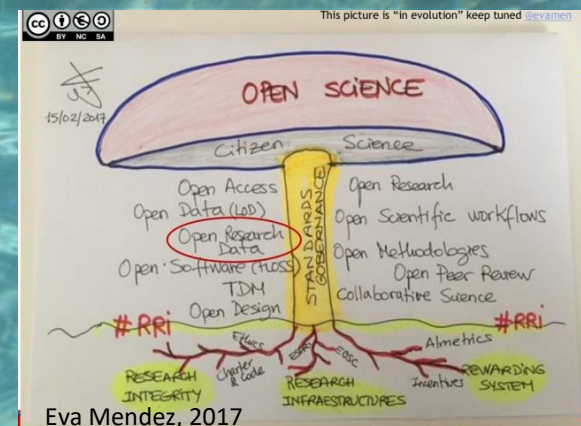 This picture is “in evolution” keep tuned @evamen
cc
BY NC SA
15/02/2017
OPEN SCIENCE
Citizen Science
Open Access
Open Data (LOD)
Open Research
Data
Open Software (FLOSS)
TDM
Open Design
STANDARDS
GOBERNANCE
Open Research
Open Scientific workflows
Open Methodologies
Open Peer Review
Collaborative Science
#RRi
#RRi
Ethics
Charter
& Code
ESFRI
EOSC
Almetrics
Incentives
RESEARCH
INTEGRITY
RESEARCH
INFRAESTRUCTURES
REWARDING
SYSTEM
Eva Mendez, 2017